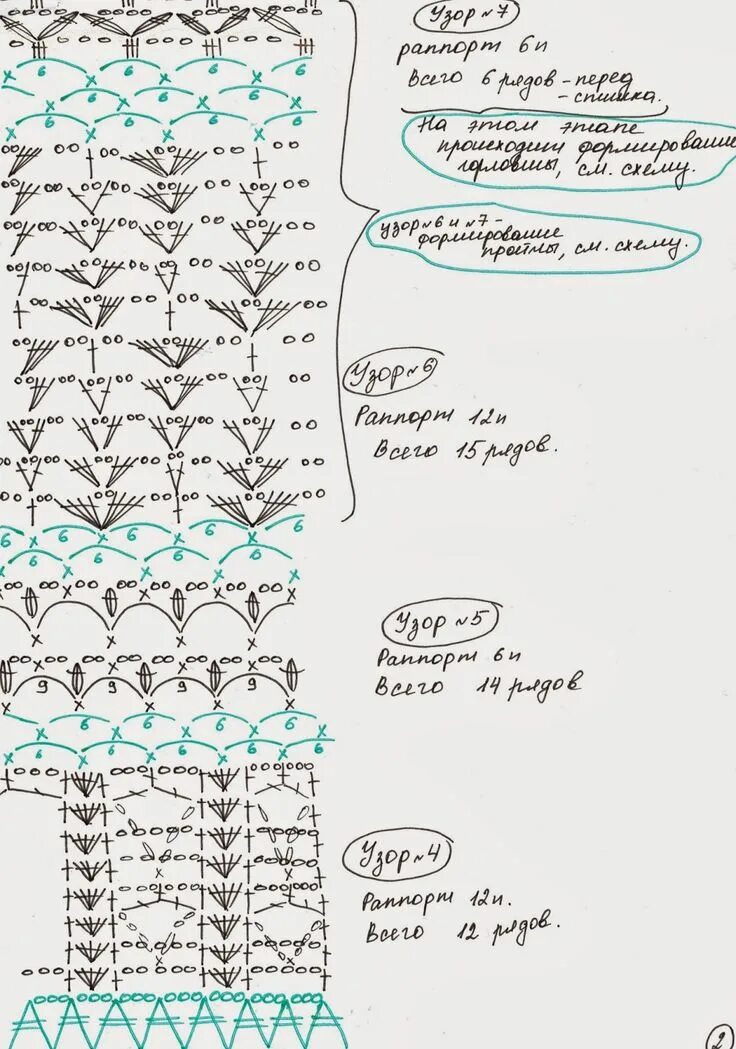 Узор №7
раппорт 6п
Всего 6 рядов - перед
- спинка.
На этом этапе
происходит формирование
горловины, см. схему.
узор №6 и №7 -
формирование
проймы, см. схему.
Узор №6
Раппорт 12п
Всего 15 рядов.
Узор №5
Раппорт 6п
Всего 14 рядов
Узор №4
Раппорт 12п.
Всего 12 рядов.
6 6 6 6
6 6 6 6
6 6 6 6
6 6 6 6
6 6 6 6
9 9 9 9
6 6 6 6
6 6 6 6
2